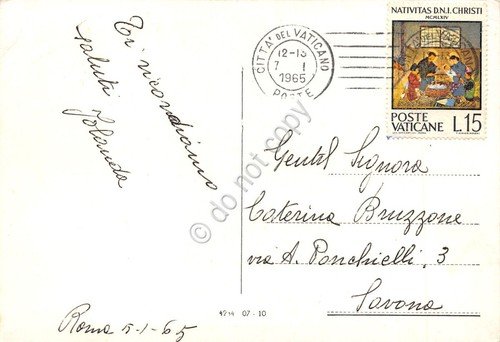 Ti ricordiamo
saluti
Jolanda
Roma 5-1-65
4214 07-10
CITTA' DEL VATICANO
12-13
7 1
1965
POSTE
NATIVITAS D.N.I. CHRISTI
MCMLXIV
POSTE
VATICANE L.15
Gentil Signora
Caterina Bruzzone
via A. Ponchielli, 3
Savona
do not copy